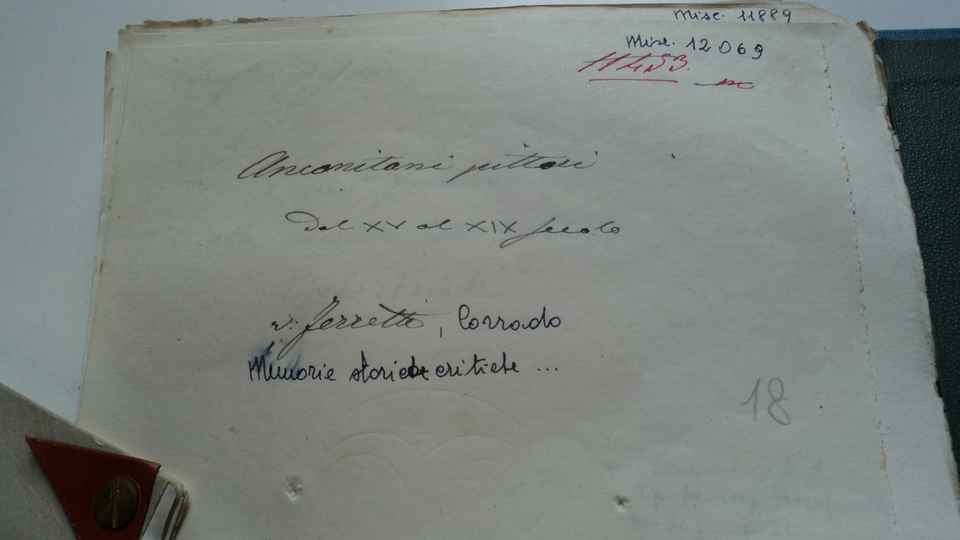 Misc. 11889
Misc. 12069
11453.
Anconitani pittori
Dal XV al XIX secolo
v. Ferretti, Corrado
Memorie storiche critiche ...
18